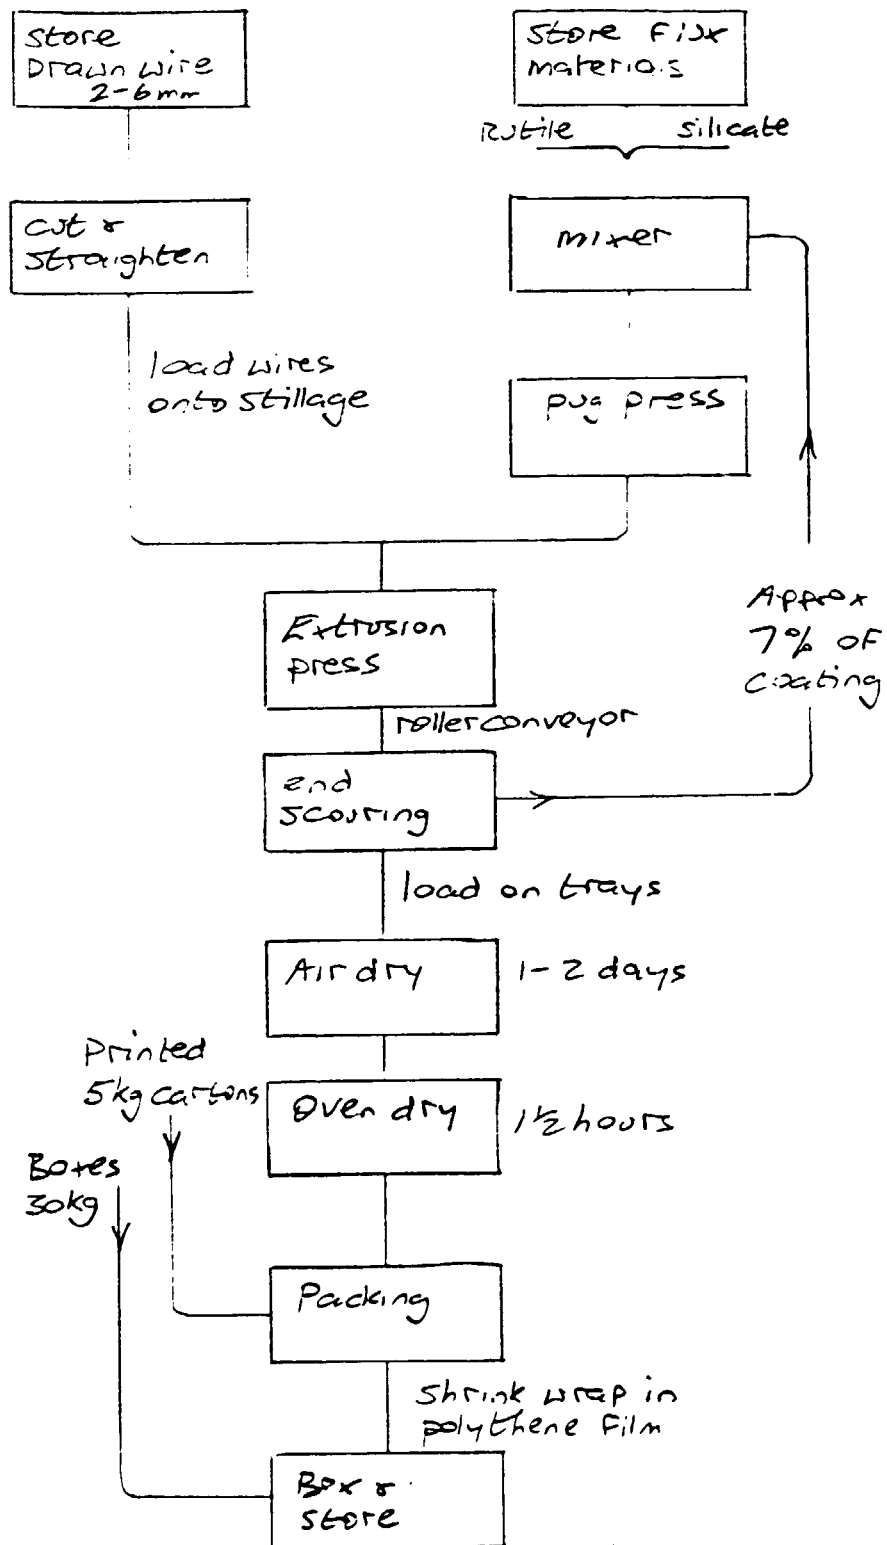 store
Drawn wire
2-6mm
Store Flux
materials
Rutile silicate
cut &
straighten
mixer
load wires
onto stillage
pug press
Extrusion
press
Approx
7% of
coating
roller conveyor
end
scouring
load on trays
Air dry
1-2 days
Printed
5kg cartons
Oven dry
1½ hours
Boxes
30kg
Packing
Shrink wrap in
polythene Film
Box &
store